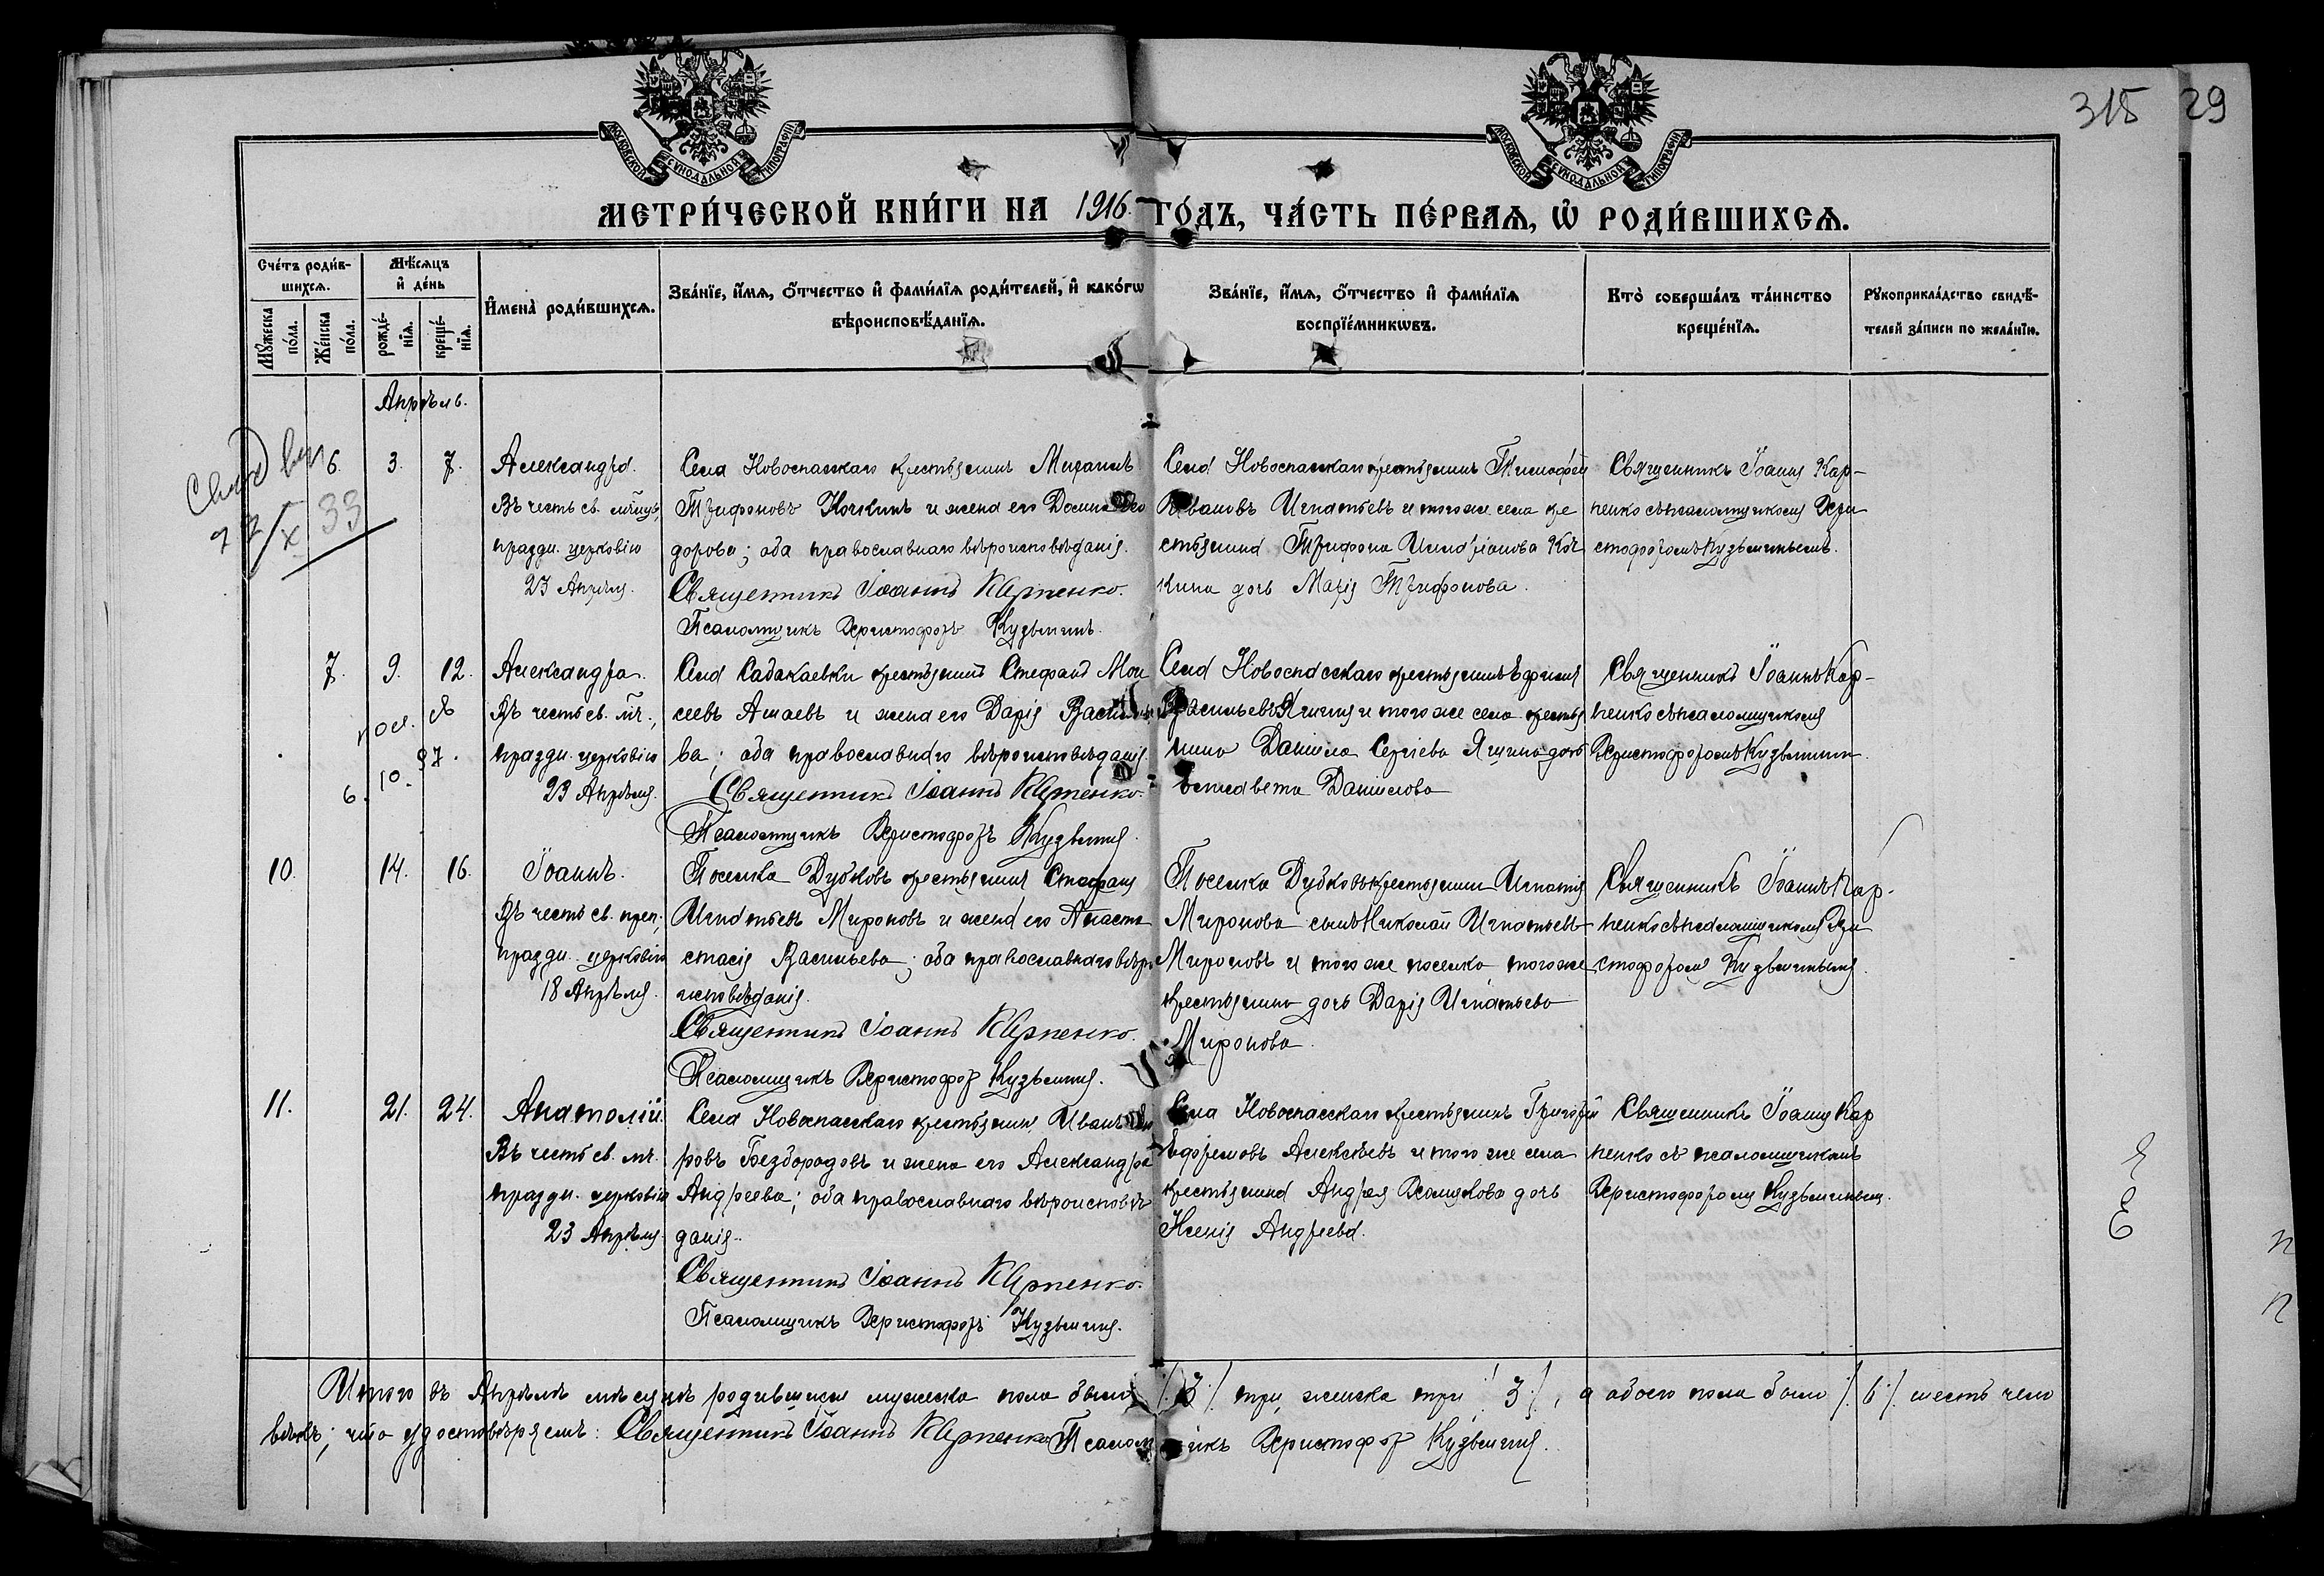 315 29
МОСКОВСКОЙ СѴНОДАЛЬНОЙ ТИПОГРАФІИ
МОСКОВСКОЙ СѴНОДАЛЬНОЙ ТИПОГРАФІИ
МЕТРИ́ЧЕСКОЙ КНИ́ГИ НА 1916 ГО́ДЪ, ЧА́СТЬ ПЕ́РВАѦ, Ѡ҆ РОДИ́ВШИХСѦ.
Сче́тъ роди́в-
шихсѧ.
Мѣ́сѧцъ
и҆ де́нь
Мꙋ́жеска по́ла.
Же́нска по́ла.
рожде́-
нїѧ.
креще́-
нїѧ.
И҆мена̀ роди́вшихсѧ.
Зва́нїе, и҆́мѧ, ѻ҆́тчество и҆ фами́лїѧ роди́телей, и҆ како́гѡ
вѣроисповѣ́данїѧ.
Зва́нїе, и҆́мѧ, ѻ҆́тчество и҆ фами́лїѧ
воспрїе́мникѡвъ.
Кто̀ соверша́лъ та́инство
креще́нїѧ.
Рꙋкоприкла́дство свидѣ́-
телей за́писи по жела́нїю.
Апрѣль.
6. 3. 7.
Александра.
Въ честь св. мчицы,
праздн. церковію
23 Апрѣля.
Села Новоспасскаго крестьянинъ Михаилъ
Трифоновъ Кочкинъ и жена его Домна Ѳео
дорова; оба православнаго вѣроисповѣданія.
Священникъ Іоаннъ Карпенко.
Псаломщикъ Христофоръ Кузьминъ.
Села Новоспасскаго крестьянинъ Тимофей
Ивановъ Игнатьевъ и того же села кре
стьянина Трифона Коч
кина дочь Марія Трифонова.
Священникъ Іоаннъ Кар-
пенко съ псаломщикомъ Хри
стофоромъ Кузьминымъ.
7. 9. 12.
Александра.
Въ честь св. мч.,
праздн. церковію
23 Апрѣля.
Села Садакаевки крестьянинъ Стефанъ Мои
сеевъ Ашаевъ и жена его Дарія Василье
ва; оба православнаго вѣроисповѣданія.
Священникъ Іоаннъ Карпенко.
Псаломщикъ Христофоръ Кузьминъ.
Села Новоспасскаго крестьянинъ Ефимъ
Васильевъ Яшинъ и того же села крестья
нина Даніила Сергіева Яшина дочь
Елисавета Даніилова
Священникъ Іоаннъ Кар-
пенко съ псаломщикомъ
Христофоромъ Кузьминым
10. 14. 16.
Іоаннъ.
Въ честь св. преп.,
праздн. церковію
18 Апрѣля.
Поселка Дубковъ крестьянинъ Стефанъ
Игнатьевъ Мироновъ и жена его Анаста
стасія Васильева; оба православнаго вѣро
исповѣданія.
Священникъ Іоаннъ Карпенко.
Псаломщикъ Христофоръ Кузьминъ.
Поселка Дубковъ крестьянина Игнатія
Миронова сынъ Николай Игнатьевъ
Мироновъ и того же поселка того же
крестьянина дочь Дарія Игнатьева
Миронова.
Священникъ Іоаннъ Кар-
пенко съ псаломщикомъ Хри
стофоромъ Кузьминымъ.
11. 21. 24.
Анатолій.
Въ честь св. мч.
праздн. церковію
23 Апрѣля.
Села Новоспасскаго крестьянинъ Иванъ
ровъ Бездородовъ и жена его Александра
Андреева; оба православнаго вѣроисповѣ
данія.
Священникъ Іоаннъ Карпенко.
Псаломщикъ Христофоръ Кузьминъ.
Села Новоспасскаго крестьянинъ Григорій
Ефремовъ Алексѣевъ и того же села
крестьянина Андрея Хомякова дочь
Ксенія Андреева.
Священникъ Іоаннъ Кар
пенко съ псаломщикомъ
Христофоромъ Кузьминымъ.
Итого въ Апрѣлѣ мѣсяцѣ родившихся мужеска пола было /.3./ три, женска три /.3./, а обоего пола было /.6./ шесть чело
вѣкъ; что удостовѣряемъ: Священникъ Іоаннъ Карпенко Псаломщикъ Христофоръ Кузьминъ.